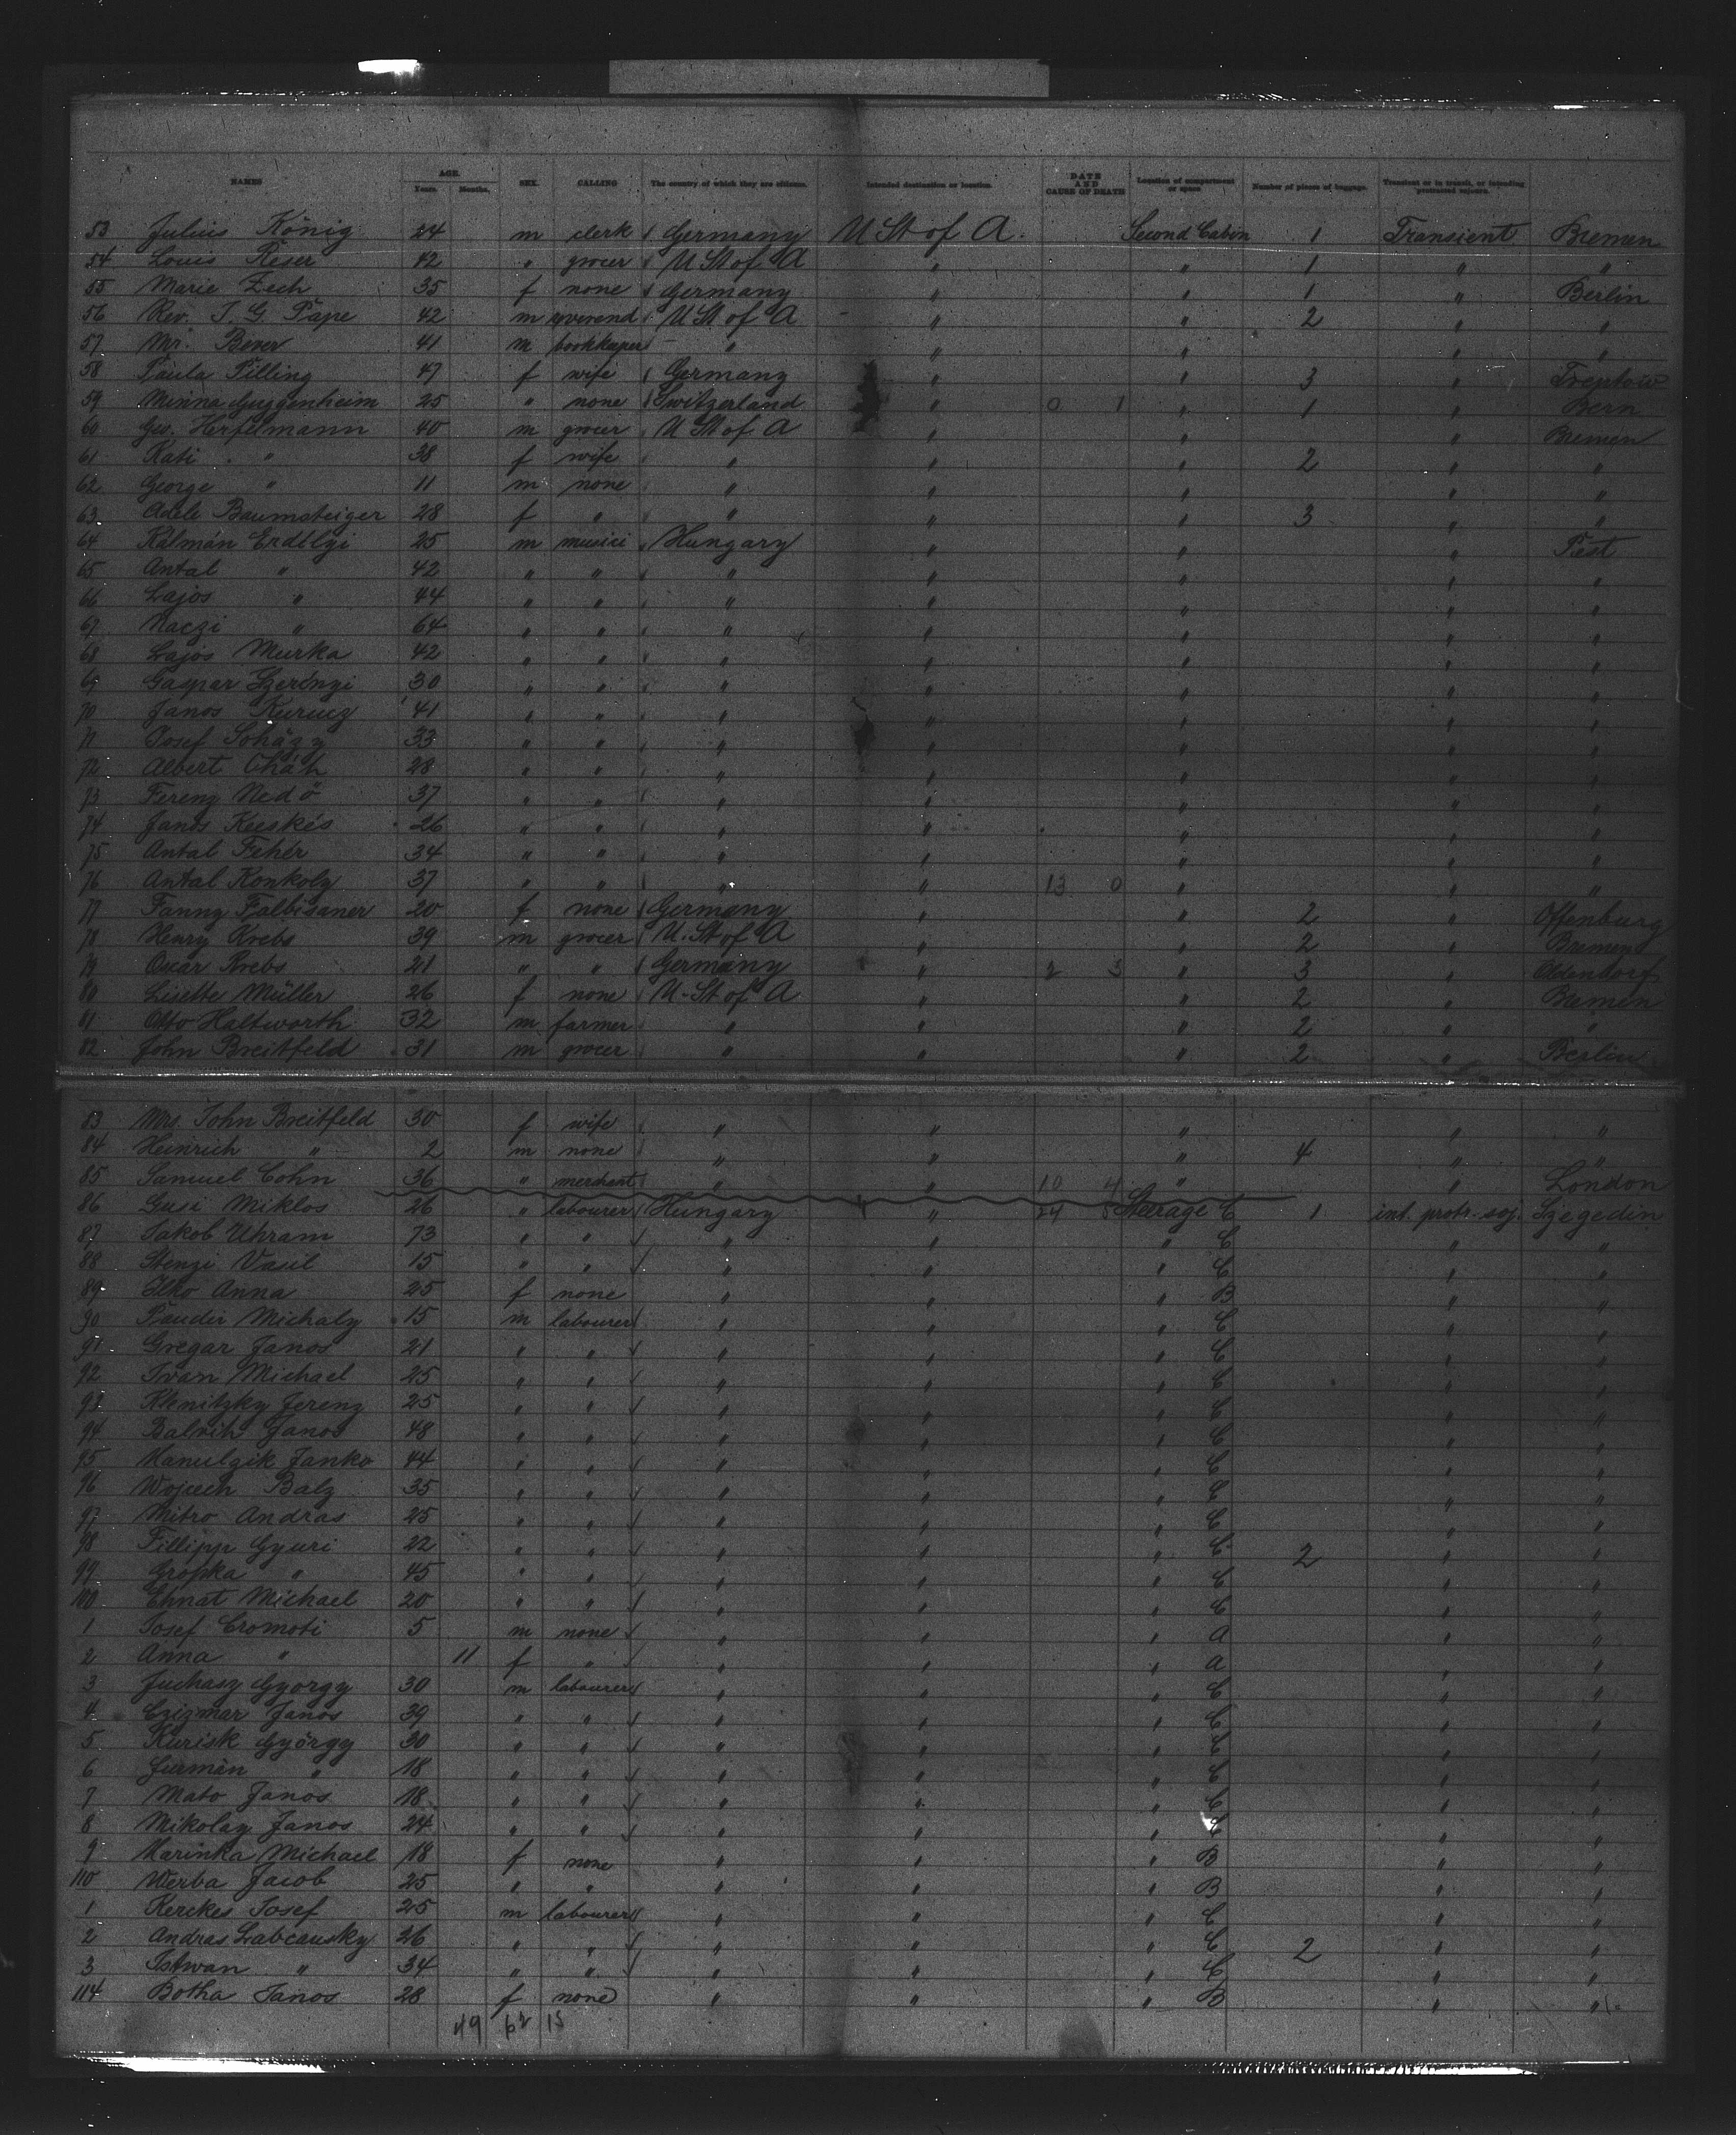 NAMES AGE. Years. Months. SEX. CALLING The country of which they are citizens. Intended destination or location. DATE AND CAUSE OF DEATH Location of compartment or space. Number of pieces of baggage. Transient or in transit, or intending protracted sojourn.
53 Julius König 24 m clerk Germany U St of A. Second Cabin 1 Transient Bremen
54 Louis Reser 42 " grocer U St of A " " 1 " "
55 Marie Zech 35 f none Germany " " 1 " Berlin
56 Rev. J. G. Pape 42 m reverend U St of A " " 2 " "
57 Mr. Bever 41 m bookkeeper " " " " "
58 Paula Pilling 47 f wife Germany " " 3 " Treptow
59 Minna Guggenheim 25 " none Switzerland " 0 1 " 1 " Bern
60 Geo. Herfelmann 40 m grocer U St of A " " " Bremen
61 Kati " 38 f wife " " " 2 " "
62 George " 11 m none " " " " "
63 Adele Baumsteiger 28 f " " " " 3 " "
64 Kálmán Erdélyi 25 m musici Hungary " " " Pest
65 Antal " 42 " " " " " " "
66 Lajos " 44 " " " " " " "
67 Naczi " 64 " " " " " " "
68 Lajos Murka 42 " " " " " " "
69 Gaspar Szerényi 30 " " " " " " "
70 Janos Kurucz 41 " " " " " " "
71 Josef Soházy 33 " " " " " " "
72 Albert Oháh 28 " " " " " " "
73 Ferenz Nedö 37 " " " " " " "
74 Janos Kecskés 26 " " " " " " "
75 Antal Fehér 34 " " " " " " "
76 Antal Konkoly 37 " " " " 13 0 " " "
77 Fanny Falbisaner 20 f none Germany " " 2 " Offenburg
78 Henry Krebs 39 m grocer U. St of A " " 2 " Bremen
79 Oscar Krebs 21 " " Germany " 2 3 " 3 " Oldendorf
80 Lisette Müller 26 f none U. St of A " " 2 " Bremen
81 Otto Haltworth 32 m farmer " " " 2 " "
82 John Breitfeld 31 m grocer " " " 2 " Berlin
83 Mrs. John Breitfeld 30 f wife " " " " "
84 Heinrich " 2 m none " " " 4 " "
85 Samuel Cohn 36 " merchant " " 10 4 " " London
86 Gusi Miklos 26 " labourer Hungary " 24 8 Steerage C 1 int. protr. soj. Szegedin
87 Jakob Uhram 73 " " " " " C " "
88 Stenzi Vasil 15 " " " " " C " "
89 Ilko Anna 25 f none " " " B " "
90 Pauder Michaly 15 m labourer " " " C " "
91 Gregar Janos 21 " " " " " C " "
92 Ivan Michael 25 " " " " " C " "
93 Klenitzky Ferenz 25 " " " " " C " "
94 Balvih Janos 48 " " " " " C " "
95 Hanulzik Janko 44 " " " " " C " "
96 Wojcech Balz 35 " " " " " C " "
97 Mitro Andras 25 " " " " " C " "
98 Fillipp Gyuri 22 " " " " " C 2 " "
99 Gropka " 45 " " " " " C " "
100 Ehnat Michael 20 " " " " " C " "
1 Josef Cromoti 5 m none " " " A " "
2 Anna " 11 f " " " " A " "
3 Juchasz György 30 m labourer " " " C " "
4 Czizmar Janos 39 " " " " " C " "
5 Kurisk György 30 " " " " " C " "
6 Jurmán " 18 " " " " " C " "
7 Mato Janos 18 " " " " " C " "
8 Mikolay Janos 24 " " " " " C " "
9 Harinka Michael 18 f none " " " B " "
110 Werba Jacob 25 " " " " " B " "
1 Kerekes Josef 25 m labourer " " " C " "
2 Andras Labcausky 26 " " " " " C 2 " "
3 Istwan " 34 " " " " " C " "
114 Botha Janos 28 f none " " " B " "
49 62 15